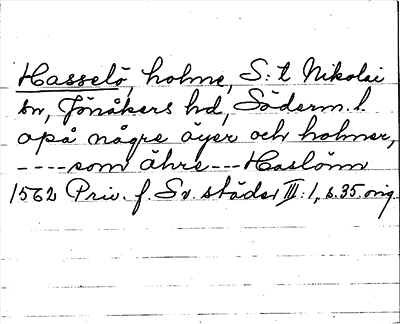 Hasselö, holme, S:t Nikolai
sn, Jönåkers hd, Söderm. l.
opå någre öyer och holmer,
----som åhre---Haslönn
1562 Priv. f. Sv. städer III:1, s.35. orig.